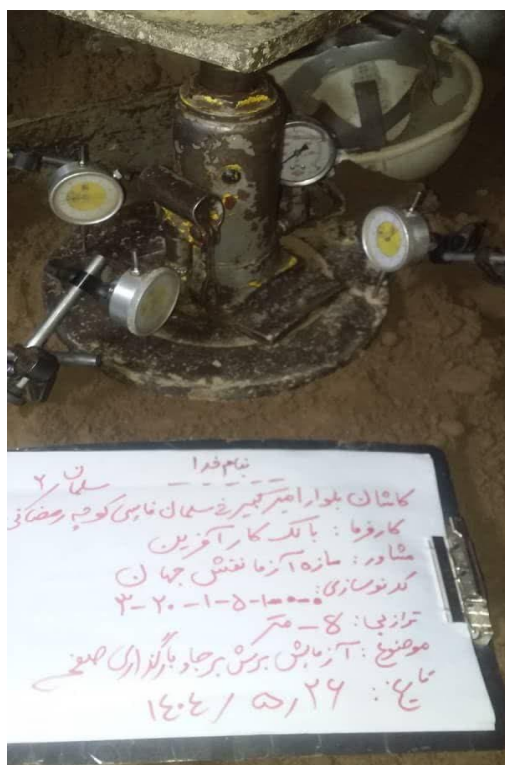 بنام خدا
سلمان ۲
کاشان بلوار امیرکبیر خ سلمان فارسی کوچه رمضانی
کارفرما: بانک کارآفرین
مشاور: سازه آزما نقش جهان
کد نوسازی: ۳-۲۰-۱-۵-۱۰۰۰۰
تراز پی: ۸- متر
موضوع: آزمایش برش برجا و بارگذاری صفحه
تاریخ: ۲۶/۵/۱۴۰۴